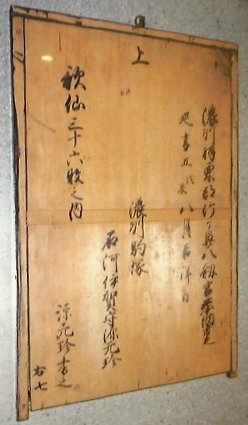 上
濃州羽栗郡竹ヶ鼻八剱宮奉納之
延享五戊辰八月吉祥日
濃州駒塚
石河伊賀守源元珍
歌仙三十六枚之内
源元珍書之
右七